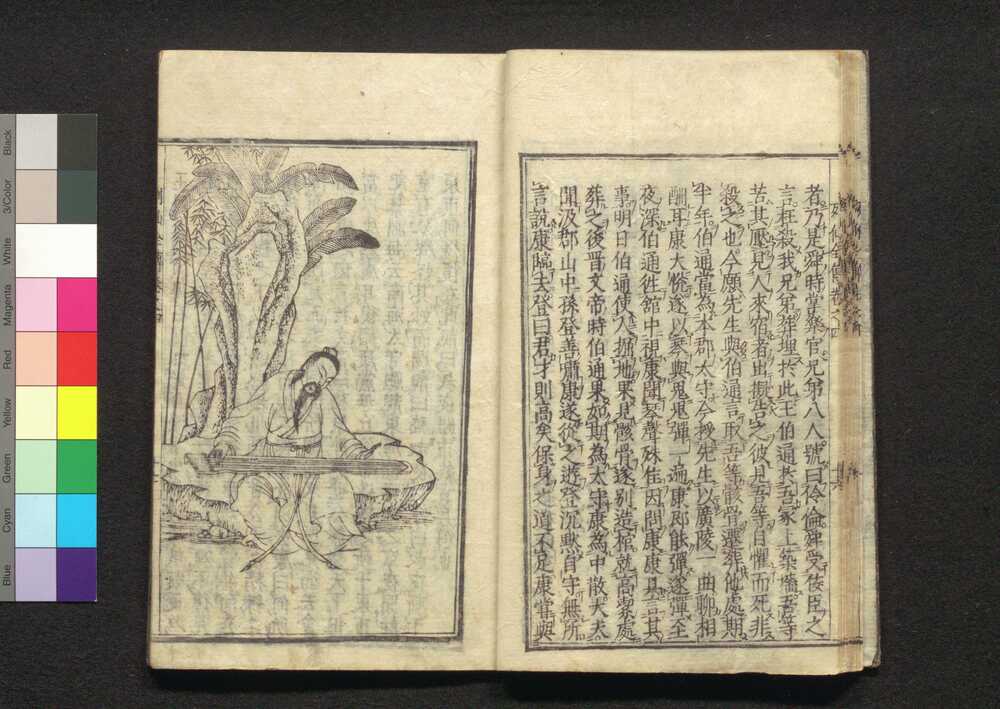 者乃是舜時掌樂官兄弟八人號曰伶倫舜受佞臣之
言枉殺我兄弟葬埋於此王伯通於吾家上築墻吾等
苦其壓見人來宿者出擬告之彼見吾等自懼而死非
殺之也今願先生與伯通言取吾等骸骨遷葬他處期
半年伯通當為本郡太守今授先生以廣陵一曲聊相
酬耳康大恱遂以琴與鬼鬼彈一遍康即能彈遂彈至
夜深伯通徃舘中視康聞琴聲殊佳因問康康具言其
事明日伯通使人掘地果見骸骨遂别造棺就高潔處
葬之後晋文帝時伯通果如期為太守康為中散大夫
聞汲郡山中孫登善嘯康遂從之遊登沉默自守無所
言說康臨去登曰君才則高矣保身之道不足康嘗與
Black
3/Color
White
Magenta
Red
Yellow
Green
Cyan
Blue